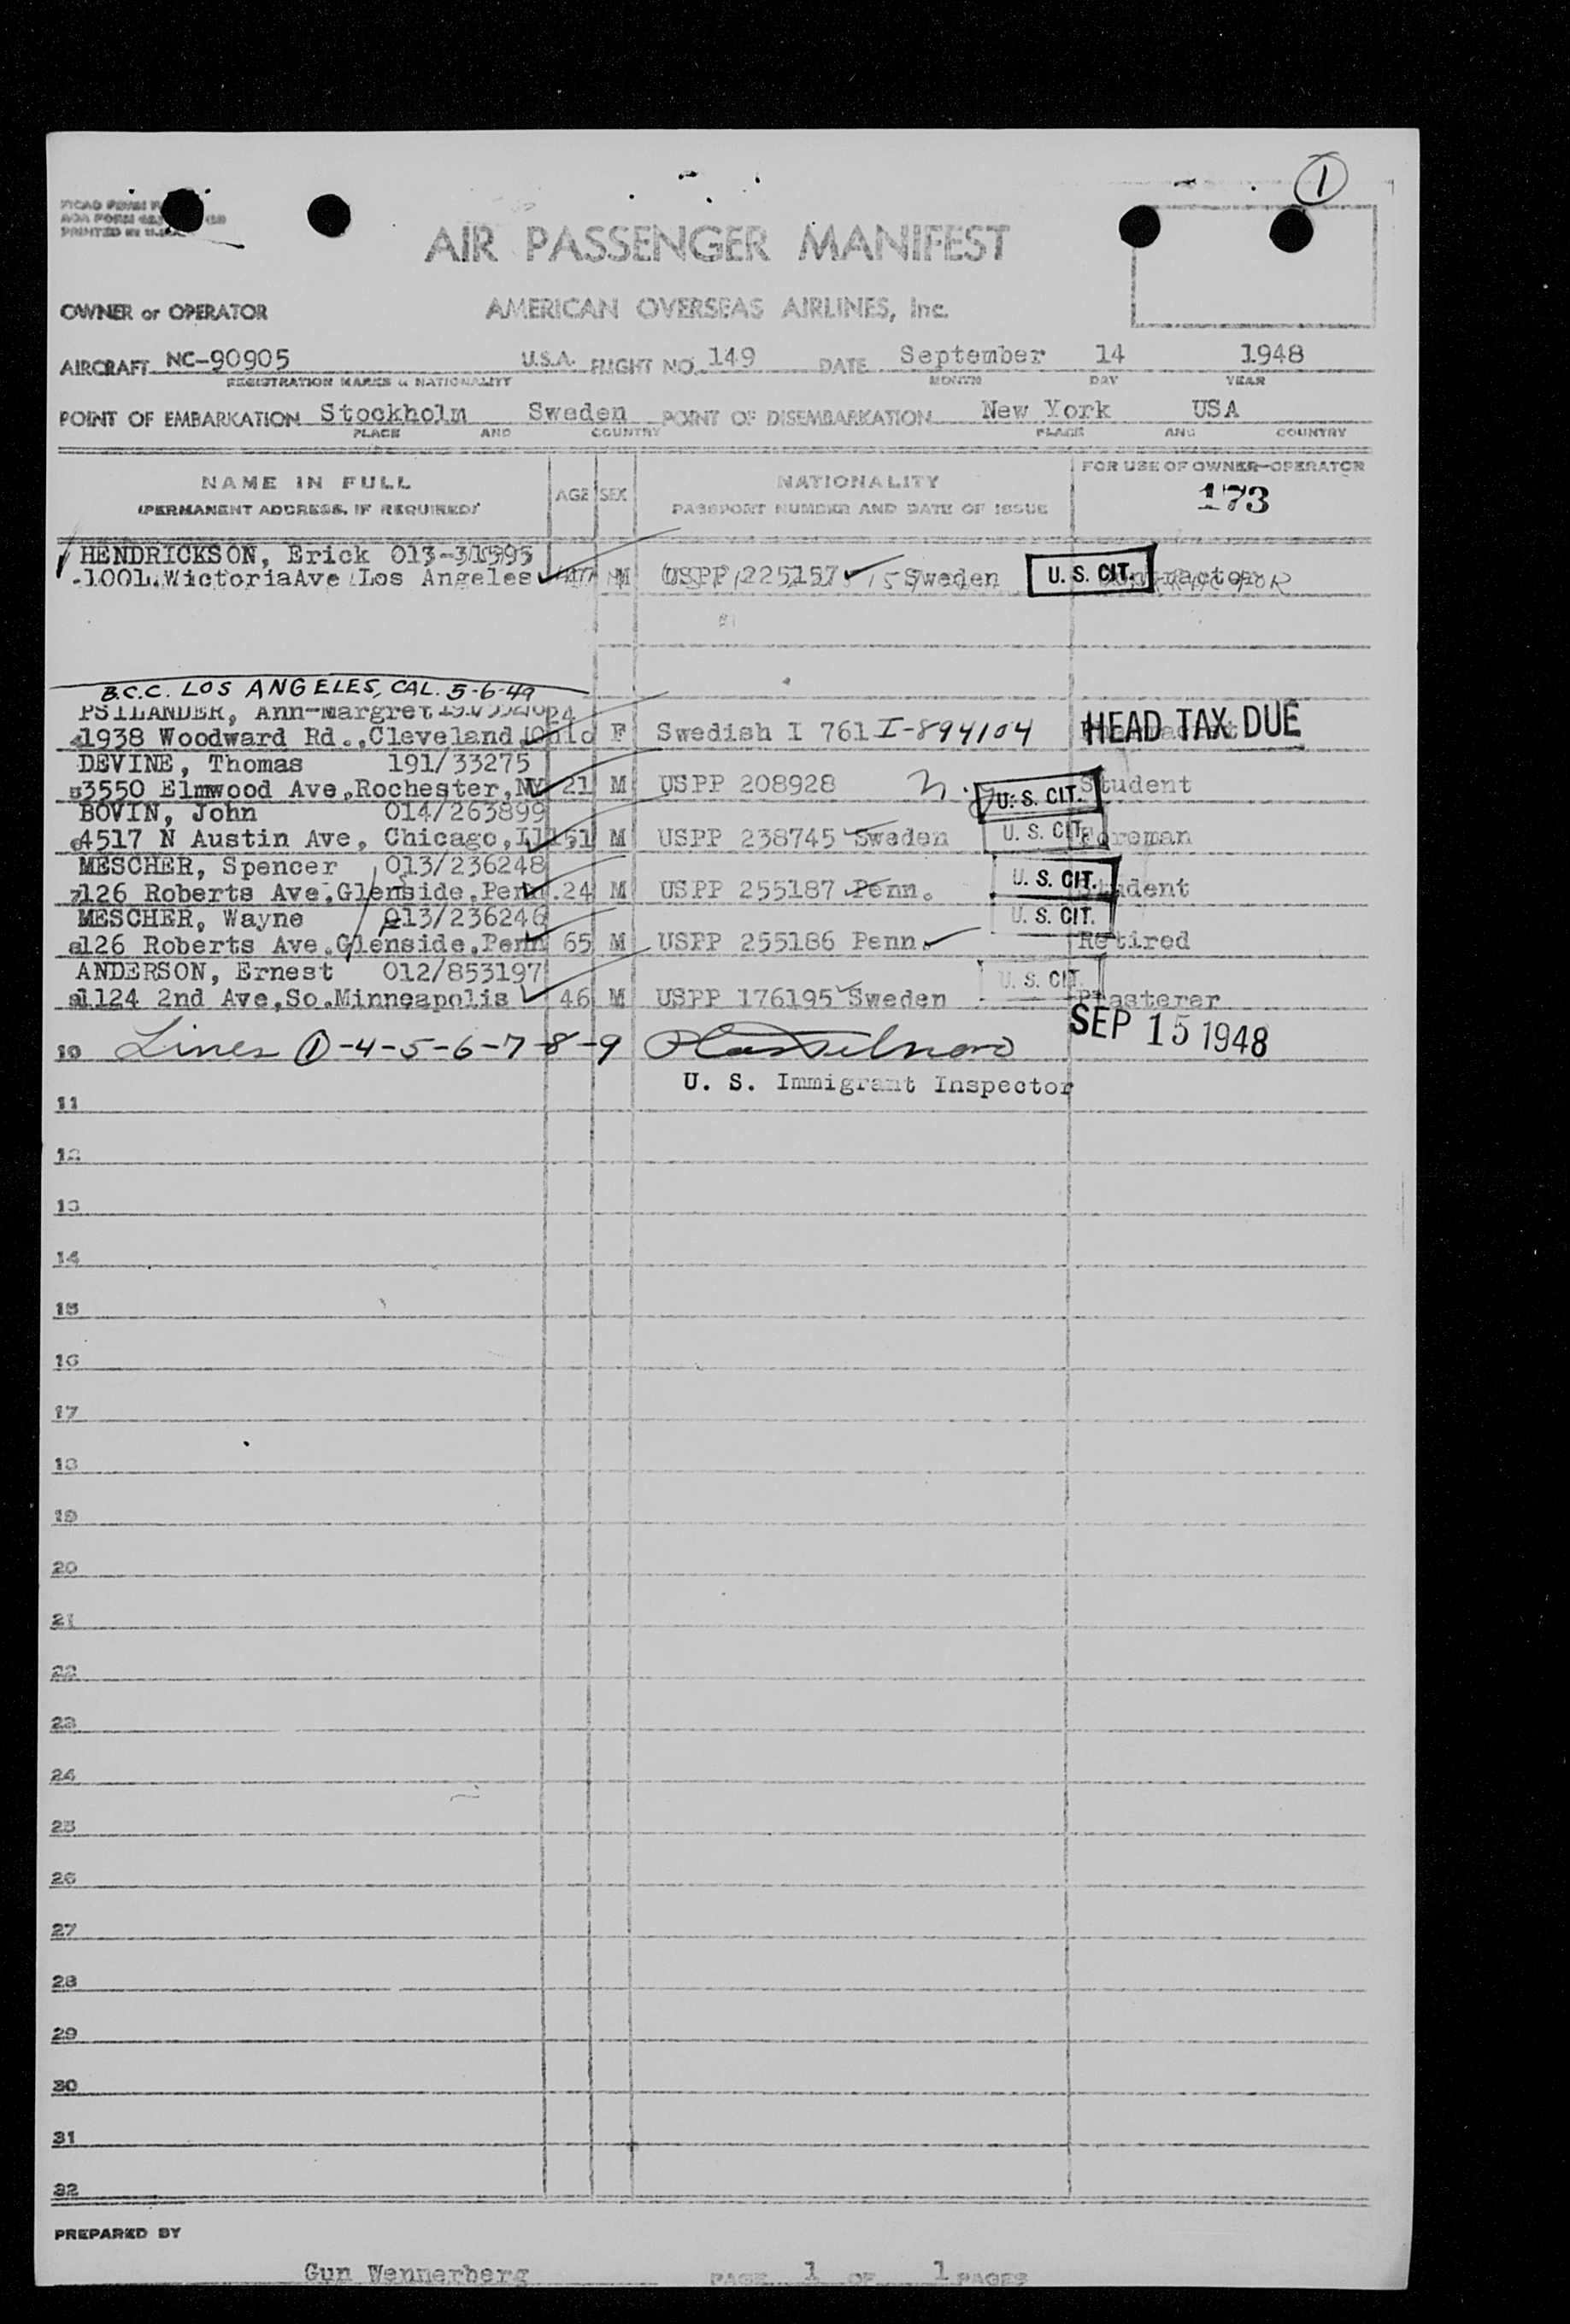 1
AIR PASSENGER MANIFEST
OWNER or OPERATOR AMERICAN OVERSEAS AIRLINES, Inc.
AIRCRAFT NC-90905 U.S.A. FLIGHT NO. 149 DATE September 14 1948
REGISTRATION MARKS & NATIONALITY MONTH DAY YEAR
POINT OF EMBARKATION Stockholm Sweden POINT OF DISEMBARKATION New York USA
PLACE AND COUNTRY PLACE AND COUNTRY
NAME IN FULL AGE SEX NATIONALITY FOR USE OF OWNER-OPERATOR
(PERMANENT ADDRESS, IF REQUIRED) PASSPORT NUMBER AND DATE OF ISSUE 173
HENDRICKSON, Erick
1001 WictoriaAve Los Angeles M USPP 225157 Sweden U. S. CIT. Contractor
B.C.C. LOS ANGELES, CAL. 5-6-49
PSILANDER, Ann-Margret
4 1938 Woodward Rd.,Cleveland,Ohio F Swedish I 761 I-894104 HEAD TAX DUE
DEVINE, Thomas 191/33275
5 3550 Elmwood Ave,Rochester,NY 21 M USPP 208928 U. S. CIT. Student
BOVIN, John 014/263899
6 4517 N Austin Ave, Chicago,Ill 51 M USPP 238745 Sweden U. S. CIT. Foreman
MESCHER, Spencer 013/236248
7 126 Roberts Ave.Glenside,Penn. 24 M USPP 255187 Penn. U. S. CIT. Student
MESCHER, Wayne 013/236246
8 126 Roberts Ave.Glenside,Penn 65 M USPP 255186 Penn. U. S. CIT. Retired
ANDERSON, Ernest 012/853197
9 1124 2nd Ave,So.Minneapolis 46 M USPP 176195 Sweden U. S. CIT. Plasterer
SEP 15 1948
10 Lines 1-4-5-6-7-8-9
U. S. Immigrant Inspector
11
12
13
14
15
16
17
18
19
20
21
22
23
24
25
26
27
28
29
30
31
32
PREPARED BY
Gun Wennerberg PAGE 1 OF 1 PAGES